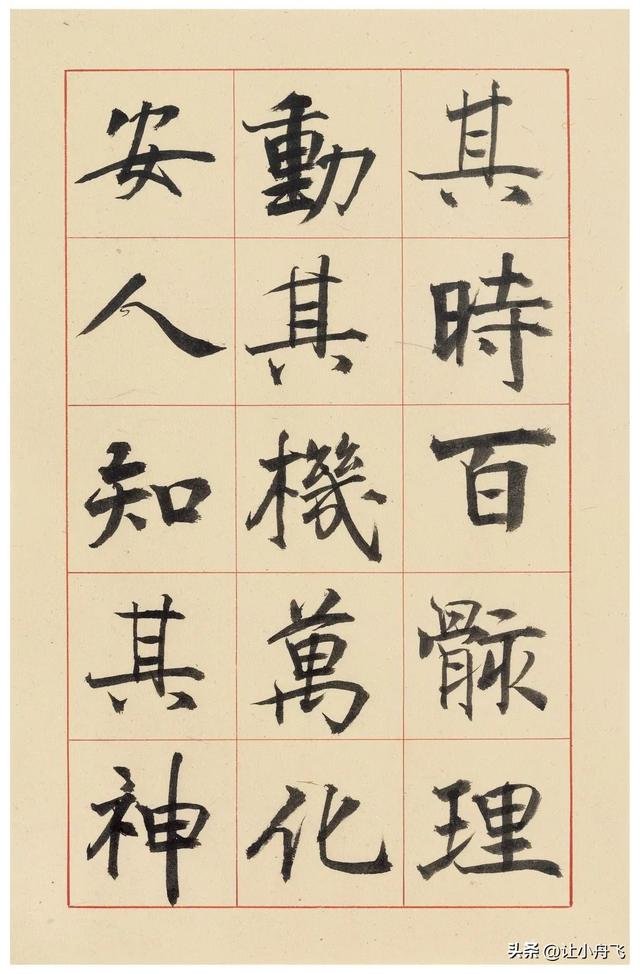 其時百骸理
動其機萬化
安人知其神
头条 @让小舟飞